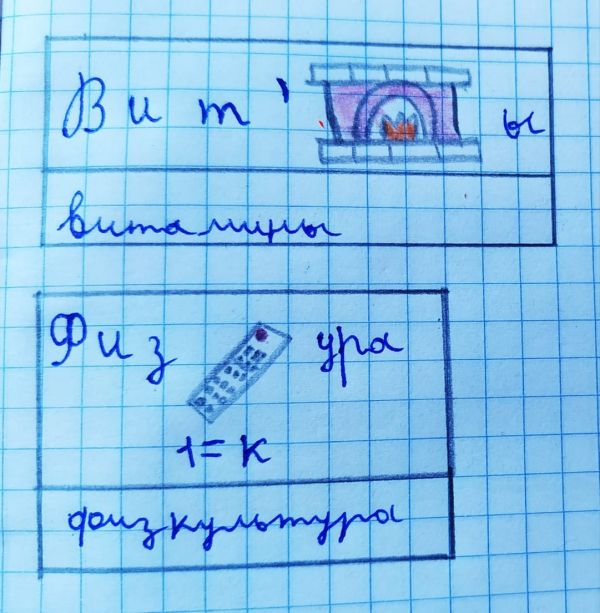 Вит ' ы
витамины
Физ ура
1=к
физкультура